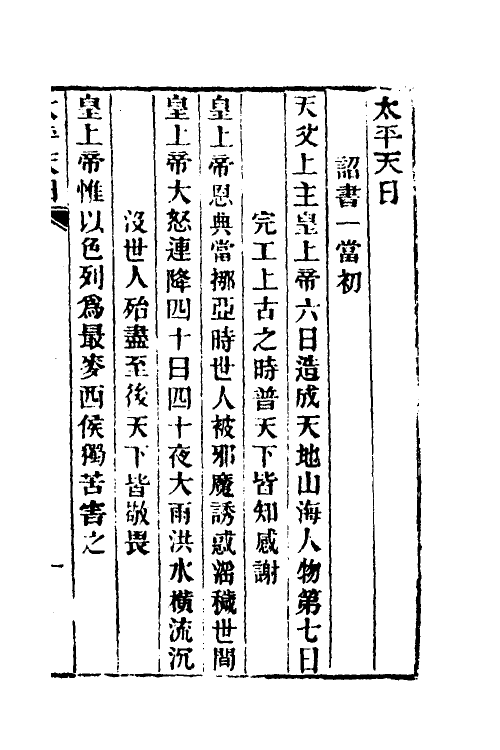 太平天日
詔書一當初
天父上主皇上帝六日造成天地山海人物第七日
完工上古之時普天下皆知感謝
皇上帝恩典當挪亞時世人被邪魔誘惑滛穢世間
皇上帝大怒連降四十日四十夜大雨洪水橫流沉
沒世人殆盡至後天下皆敬畏
皇上帝惟以色列爲最麥西侯獨苦害之
太平天日
一